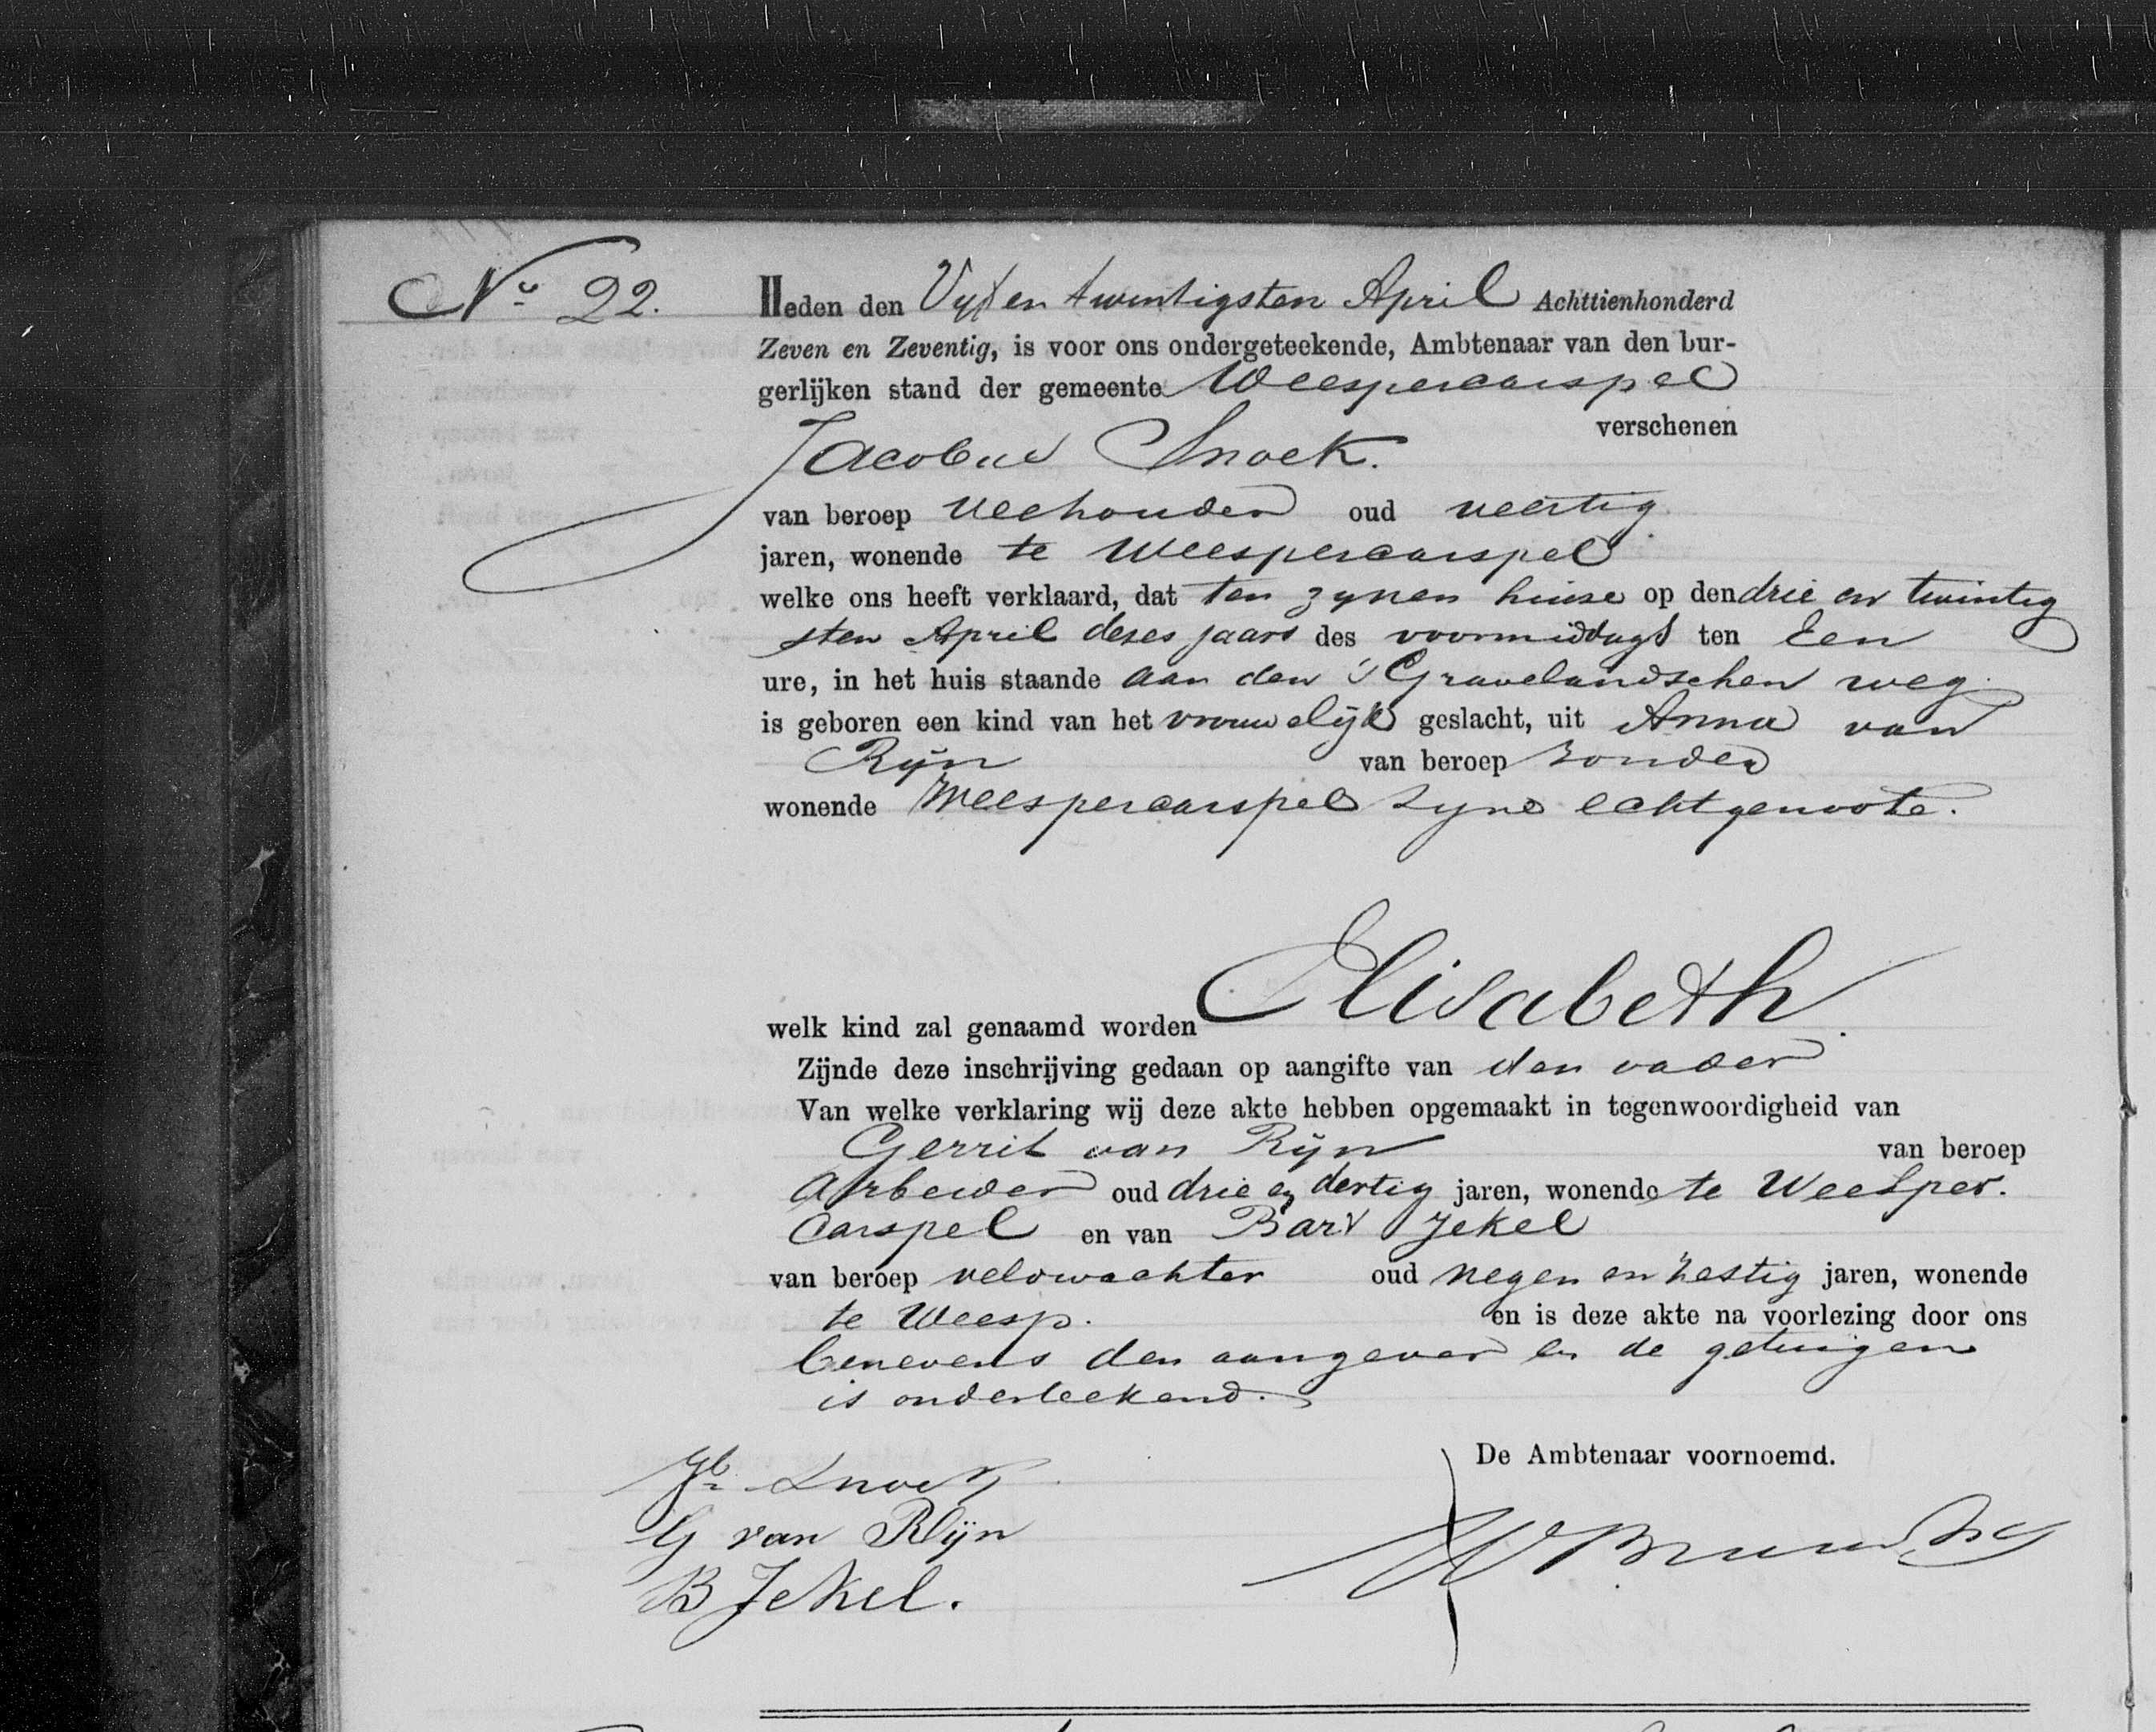 No 22.
Heden den Vijf en twintigsten April Achttienhonderd
Zeven en Zeventig, is voor ons ondergeteekende, Ambtenaar van den bur-
gerlijken stand der gemeente Weespercarspel
verschenen
Jacobus Snoek.
van beroep veehouder oud veertig
jaren, wonende te Weespercarspel
welke ons heeft verklaard, dat ten zynen huise op den drie en twintig
sten April dezes jaars des voormiddags ten Een
ure, in het huis staande aan den 's Gravelandschen weg
is geboren een kind van het vrouwelijk geslacht, uit Anna van
Rijn van beroep zonder
wonende Weespercarspel zyne echtgenoote.
welk kind zal genaamd worden Elisabeth.
Zijnde deze inschrijving gedaan op aangifte van den vader
Van welke verklaring wij deze akte hebben opgemaakt in tegenwoordigheid van
Gerrit van Rijn van beroep
arbeider oud drie en dertig jaren, wonende te Weesper.
Carspel en van Bart Jekel
van beroep veldwachter oud negen en zestig jaren, wonende
te Weesp. en is deze akte na voorlezing door ons
benevens den aangever en de getuigen
is onderteekend.
De Ambtenaar voornoemd.
Jb Snoek
G van Rijn
B Jekel.